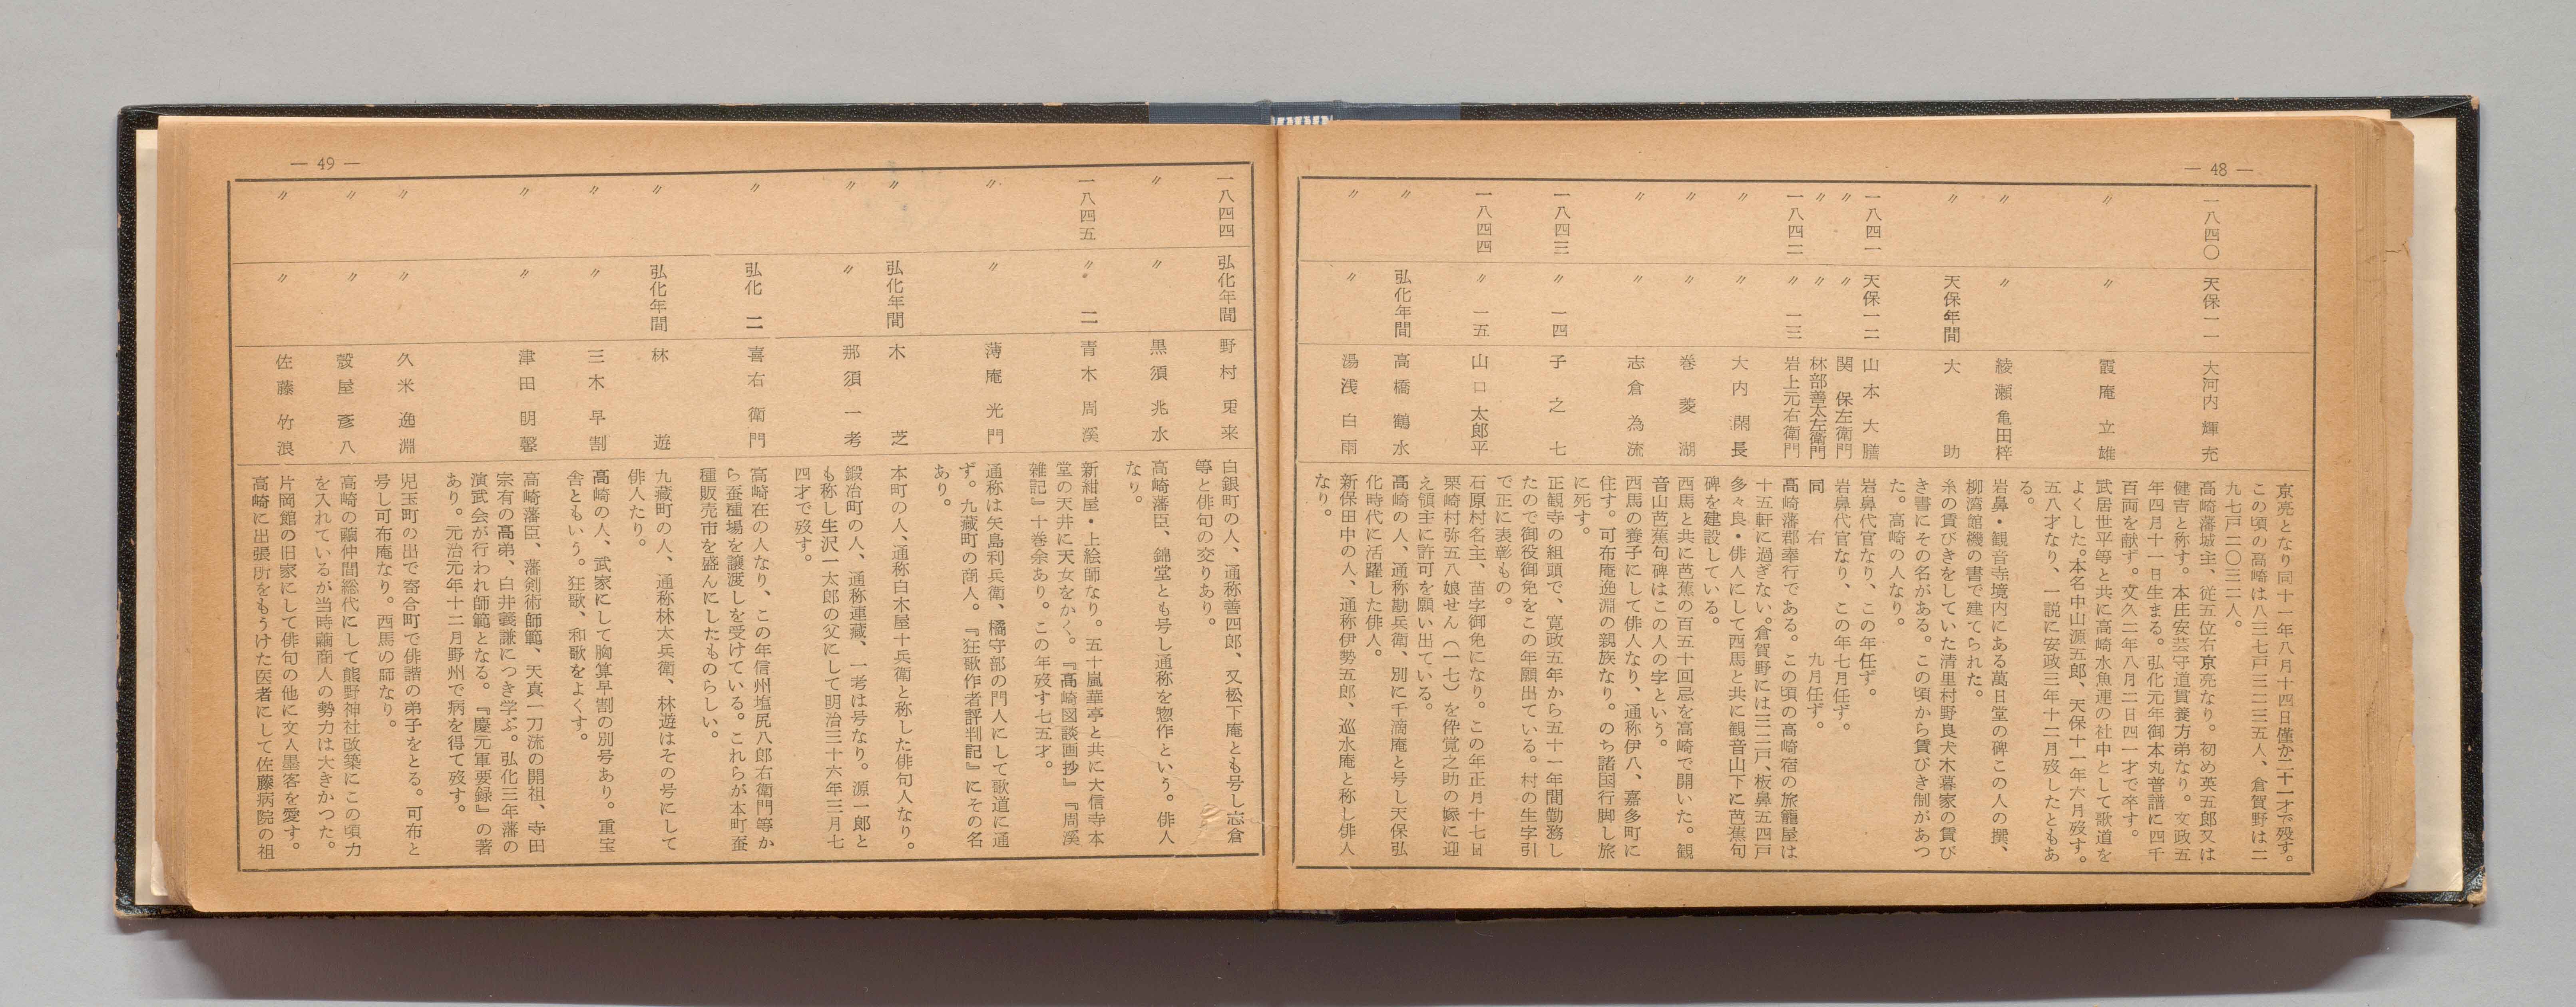 — 48 —
京亮となり同十一年八月十四日僅か二十一才で歿す。
この頃の高崎は八三七戸三二三五人、倉賀野は二
九七戸二〇三二人。
一八四〇 天保一一 大河内輝充 高崎藩城主、従五位右京亮なり。初め英五郎又は
健吉と称す。本庄安芸守道貫養方弟なり。文政五
年四月十一日生まる。弘化元年御本丸普譜に四千
百両を献ず。文久二年八月二日四一才で卒す。
〃 〃 霞庵立雄 武居世平等と共に高崎水魚連の社中として歌道を
よくした。本名中山源五郎、天保十一年六月歿す。
五八才なり、一説に安政三年十二月歿したともあ
る。
〃 〃 綾瀬亀田梓 岩鼻・観音寺境内にある萬日堂の碑この人の撰、
柳湾館機の書で建てられた。
〃 天保年間 大助 糸の賃びきをしていた清里村野良犬木暮家の賃び
き書にその名がある。この頃から賃びき制があつ
た。高崎の人なり。
一八四一 天保一二 山本大膳 岩鼻代官なり、この年任ず。
〃 〃 関保左衛門 岩鼻代官なり、この年七月任ず。
〃 〃 林部善太左衛門 同右 九月任ず。
一八四二 〃一三 岩上元右衛門 高崎藩郡奉行である。この頃の高崎宿の旅籠屋は
十五軒に過ぎない。倉賀野には三二戸、板鼻五四戸
〃 〃 大内閑長 多々良・俳人にして西馬と共に観音山下に芭蕉句
碑を建設している。
〃 〃 巻菱湖 西馬と共に芭蕉の百五十回忌を高崎で開いた。観
音山芭蕉句碑はこの人の字という。
〃 〃 志倉為流 西馬の養子にして俳人なり、通称伊八、嘉多町に
住す。可布庵逸淵の親族なり。のち諸国行脚し旅
に死す。
一八四三 〃一四 子之七 正観寺の組頭で、寛政五年から五十一年間勤務し
たので御役御免をこの年願出ている。村の生字引
で正に表彰もの。
一八四四 〃一五 山口太郎平 石原村名主、苗字御免になり。この年正月十七日
栗崎村弥五八娘せん(一七)を倅覚之助の嫁に迎
え領主に許可を願い出ている。
〃 弘化年間 高橋鶴水 高崎の人、通称勘兵衛、別に千滴庵と号し天保弘
化時代に活躍した俳人。
〃 〃 湯浅白雨 新保田中の人、通称伊勢五郎、巡水庵と称し俳人
なり。
— 49 —
一八四四 弘化年間 野村兎来 白銀町の人、通称善四郎、又松下庵とも号し志倉
等と俳句の交りあり。
〃 〃 黒須兆水 高崎藩臣、錦堂とも号し通称を惣作という。俳人
なり。
一八四五 〃二 青木周溪 新紺屋・上絵師なり。五十嵐華亭と共に大信寺本
堂の天井に天女をかく。『高崎図談画抄』『周溪
雑記』十巻余あり。この年歿す七五才。
〃 〃 薄庵光門 通称は矢島利兵衛、橘守部の門人にして歌道に通
ず。九蔵町の商人。『狂歌作者評判記』にその名
あり。
〃 弘化年間 木芝 本町の人、通称白木屋十兵衛と称した俳句人なり。
〃 〃 那須一考 鍛冶町の人、通称連藏、一考は号なり。源一郎と
も称し生沢一太郎の父にして明治三十六年三月七
四才で歿す。
〃 弘化二 喜右衛門 高崎在の人なり、この年信州塩尻八郎右衛門等か
ら蚕種場を譲渡しを受けている。これらが本町蚕
種販売市を盛んにしたものらしい。
〃 弘化年間 林遊 九藏町の人、通称林太兵衛、林遊はその号にして
俳人たり。
〃 〃 三木早割 高崎の人、武家にして胸算早割の別号あり。重宝
舎ともいう。狂歌、和歌をよくす。
〃 〃 津田明馨 高崎藩臣、藩剣術師範、天真一刀流の開祖、寺田
宗有の高弟、白井義謙につき学ぶ。弘化三年藩の
演武会が行われ師範となる。『慶元軍要録』の著
あり。元治元年十二月野州で病を得て歿す。
〃 〃 久米逸淵 児玉町の出で寄合町で俳諧の弟子をとる。可布と
号し可布庵なり。西馬の師なり。
〃 〃 穀屋彦八 高崎の繭仲間総代にして熊野神社改築にこの頃力
を入れているが当時繭商人の勢力は大きかつた。
〃 〃 佐藤竹浪 片岡館の旧家にして俳句の他に文人墨客を愛す。
高崎に出張所をもうけた医者にして佐藤病院の祖